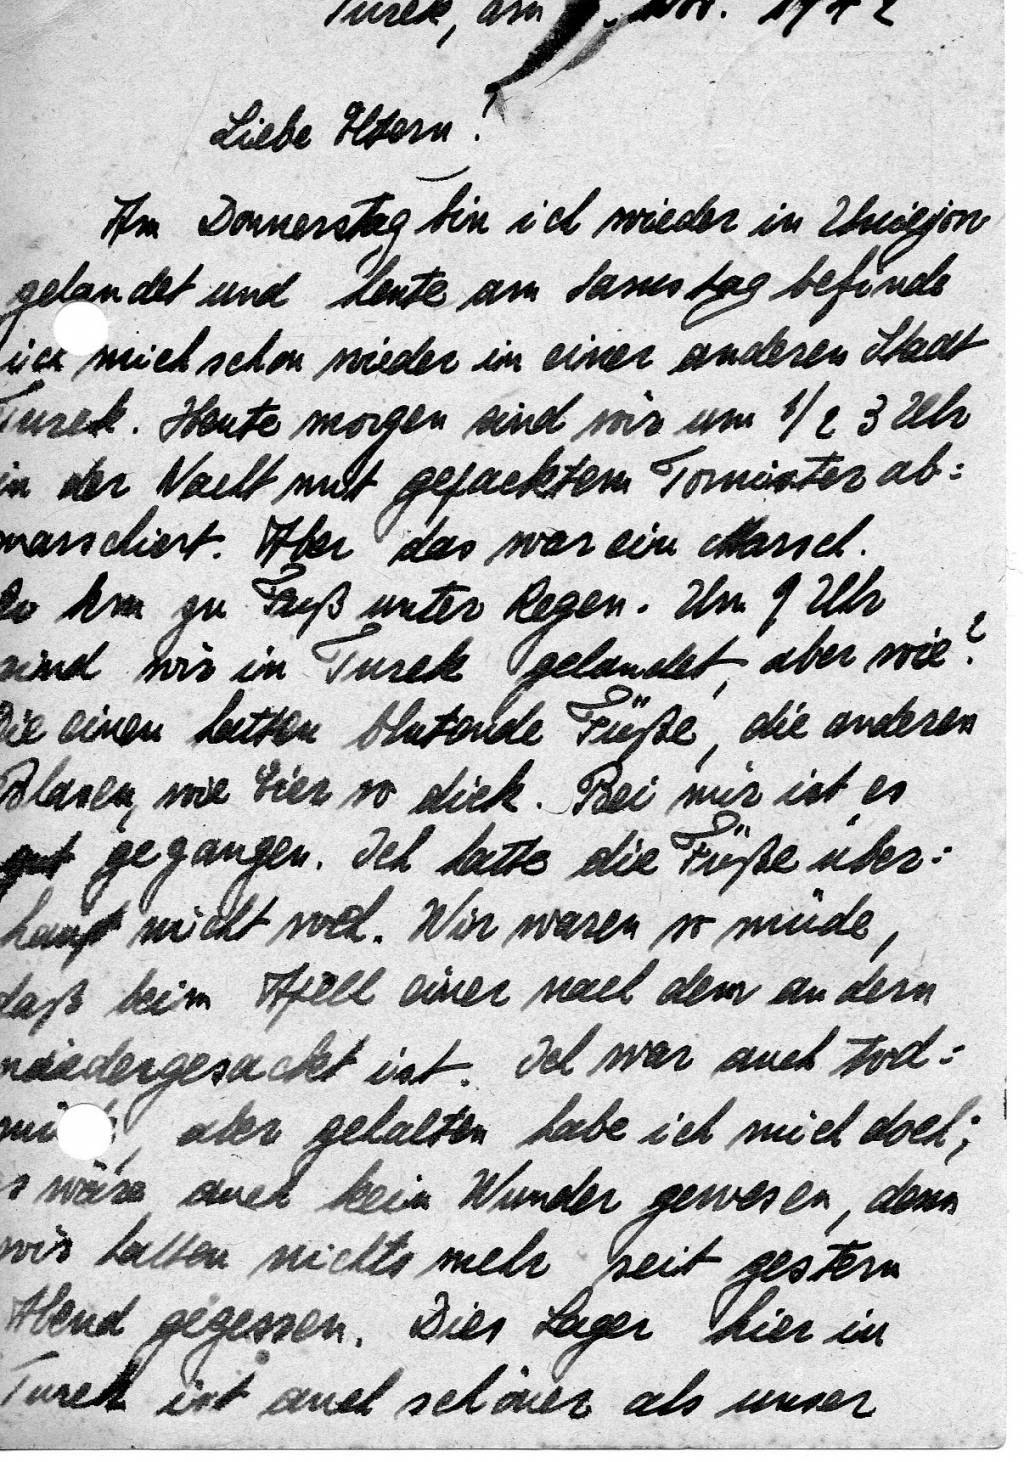 Turek, am Nov. 1942
Liebe Eltern!
Am Donnerstag bin ich wieder in
gelandet und heute am Samstag befinde
ich mich schon wieder in einer anderen Stadt
Turek. Heute morgen sind wir um 1/2 3 Uhr
in der Nacht mit gepacktem Tornister ab=
marschiert. Aber das war ein Marsch.
km zu Fuß unter Regen. Um 9 Uhr
sind wir in Turek gelandet, aber wie?
Die einen hatten blutende Füße, die anderen
Blasen, wie Eier so dick. Bei mir ist es
gut gegangen. Ich hatte die Füße über=
haupt nicht roch. Wir waren so müde,
daß beim Apell einer nach dem andern
niedergesackt ist. Ich war auch tod=
aber gehalten habe ich mich doch;
es wäre auch kein Wunder gewesen, denn
wir hatten nichts mehr seit gestern
Abend gegessen. Dies Lager hier in
Turek ist auch schöner als unser